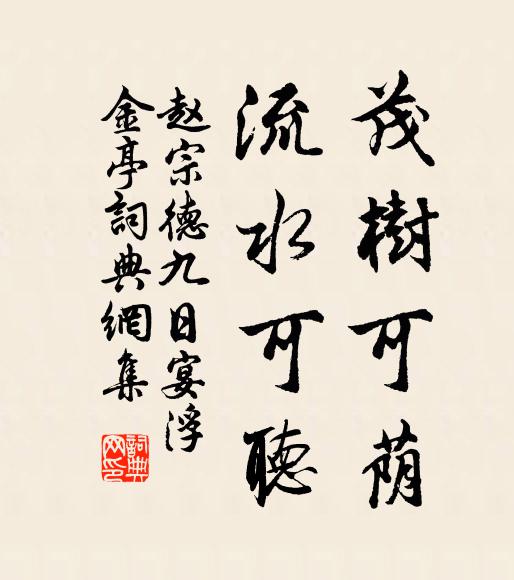 茂樹可荫
流水可聽
赵宗德九日宴浮
金亭詞典網集
詞典网印